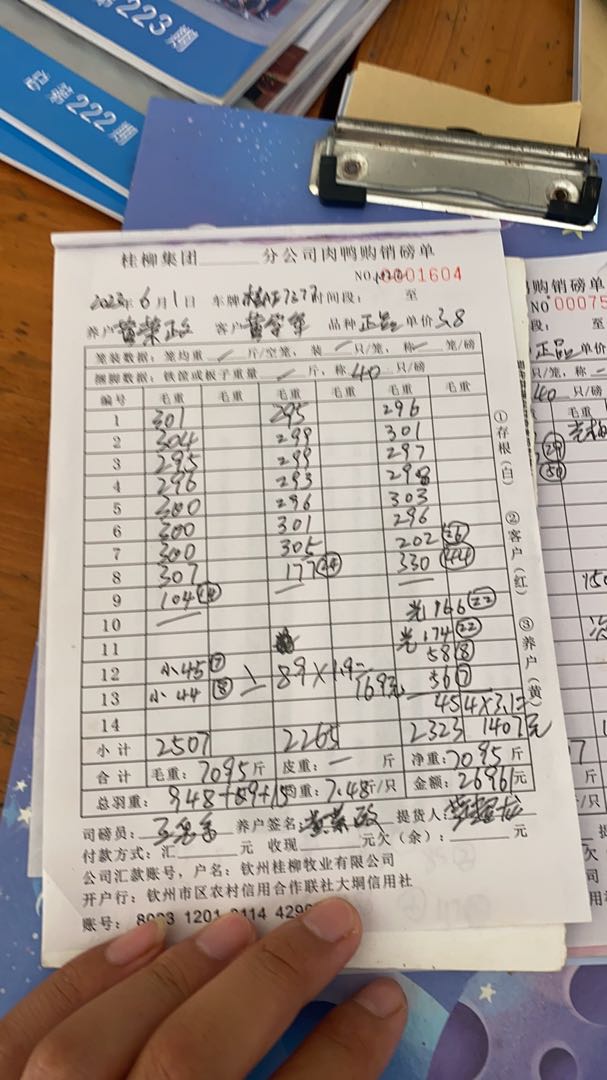 第223期
总第222期
桂柳集团 分公司肉鸭购销磅单
NO 0001604
2023年6月1日 车牌 7277 时间段: 至
养户 黄荣政 客户 品种 正品 单价 3.8
笼装数据:笼均重 斤/空笼,装 只/笼,称 笼/磅
捆脚数据:铁筐或板子重量 斤,称 40 只/磅
编号 毛重 毛重 毛重 毛重 毛重 毛重
1 301 295 296
2 304 299 301
3 295 299 297
4 296 293 298
5 300 296 303
6 300 301 296
7 300 305 202 26
8 307 177 24 330 44
9 104 14
10 光 166 22
11 光 174 22
58 8
12 小45 7 89×1.9= 56 7
13 小44 8 169元 454×3.1=
14 1407元
小计 2507 2265 2323
合计 毛重:7095斤 皮重:一 斤 净重:7095斤
总羽重: 948+59+15 均重:7.48斤/只 金额:26961元
司磅员: 养户签名:黄荣政 提货人:
付款方式:汇 元 收现 元欠(余): 元
公司汇款账号,户名:钦州桂柳牧业有限公司
开户行:钦州市区农村信用合作联社大垌信用社
账号: 1201
①存根(白) ②客户(红) ③养户(黄)
购销磅单
NO 00075
段: 至
正品 单价
只/笼,称
40 只/磅
毛重